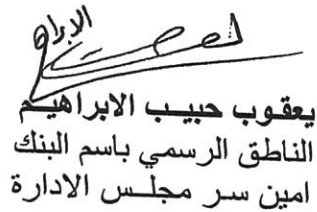 يعقوب حبيب الابراهيم
الناطق الرسمي باسم البنك
امين سر مجلس الادارة